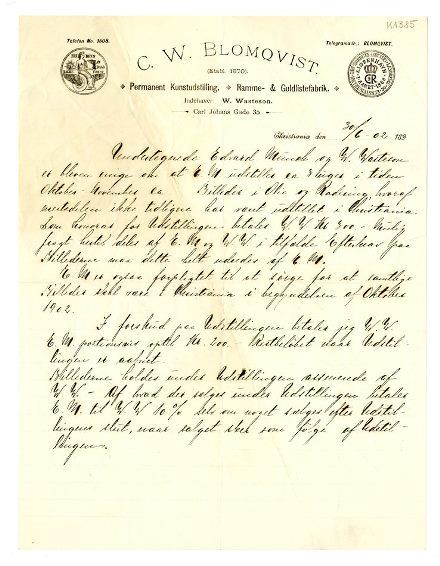 KA385
Telefon No. 1608.
Telegramadr.: BLOMQVIST.
C. W. BLOMQVIST.
(Etabl. 1870).
Permanent Kunstudstilling. Ramme- & Guldlistefabrik.
Indehaver: W. Wasteson.
Carl Johans Gade 35
Christiania den 30/6-02 189
Undertegnede Edvard Munch og W. Wasteson
er bleven enige om at E M udstilles ca 3 uger i tiden
Oktober November ca Billeder i Olie og Radering hvoraf
ikke tidligere har vært udstillet i Christiania
Som honorar for Udstillingen betales W. W. Kr 200.-
fragt deles af E. M og W. W. i tilfælde paa
Billederne maa dette helt udredes af E. M.
E. M er ogsaa forpligtet til at sørge for at samtlige
Billeder skal være i Christiania i begyndelsen af Oktober
1902.
I forskud paa Udstillingen betales jeg W. W.
E. M. portionsvis optil Kr. 200.- Restbeløbet naar Udstil-
lingen er aabnet.
Billederne holdes under Udstillingen assurerede af
W. W. - Af hvad der sælges under Udstillingen betales
E. M. til W. W 10 % selv om noget sælges efter Udstil-
lingens slut, naar salget sker som følge af Udstil-
lingen.